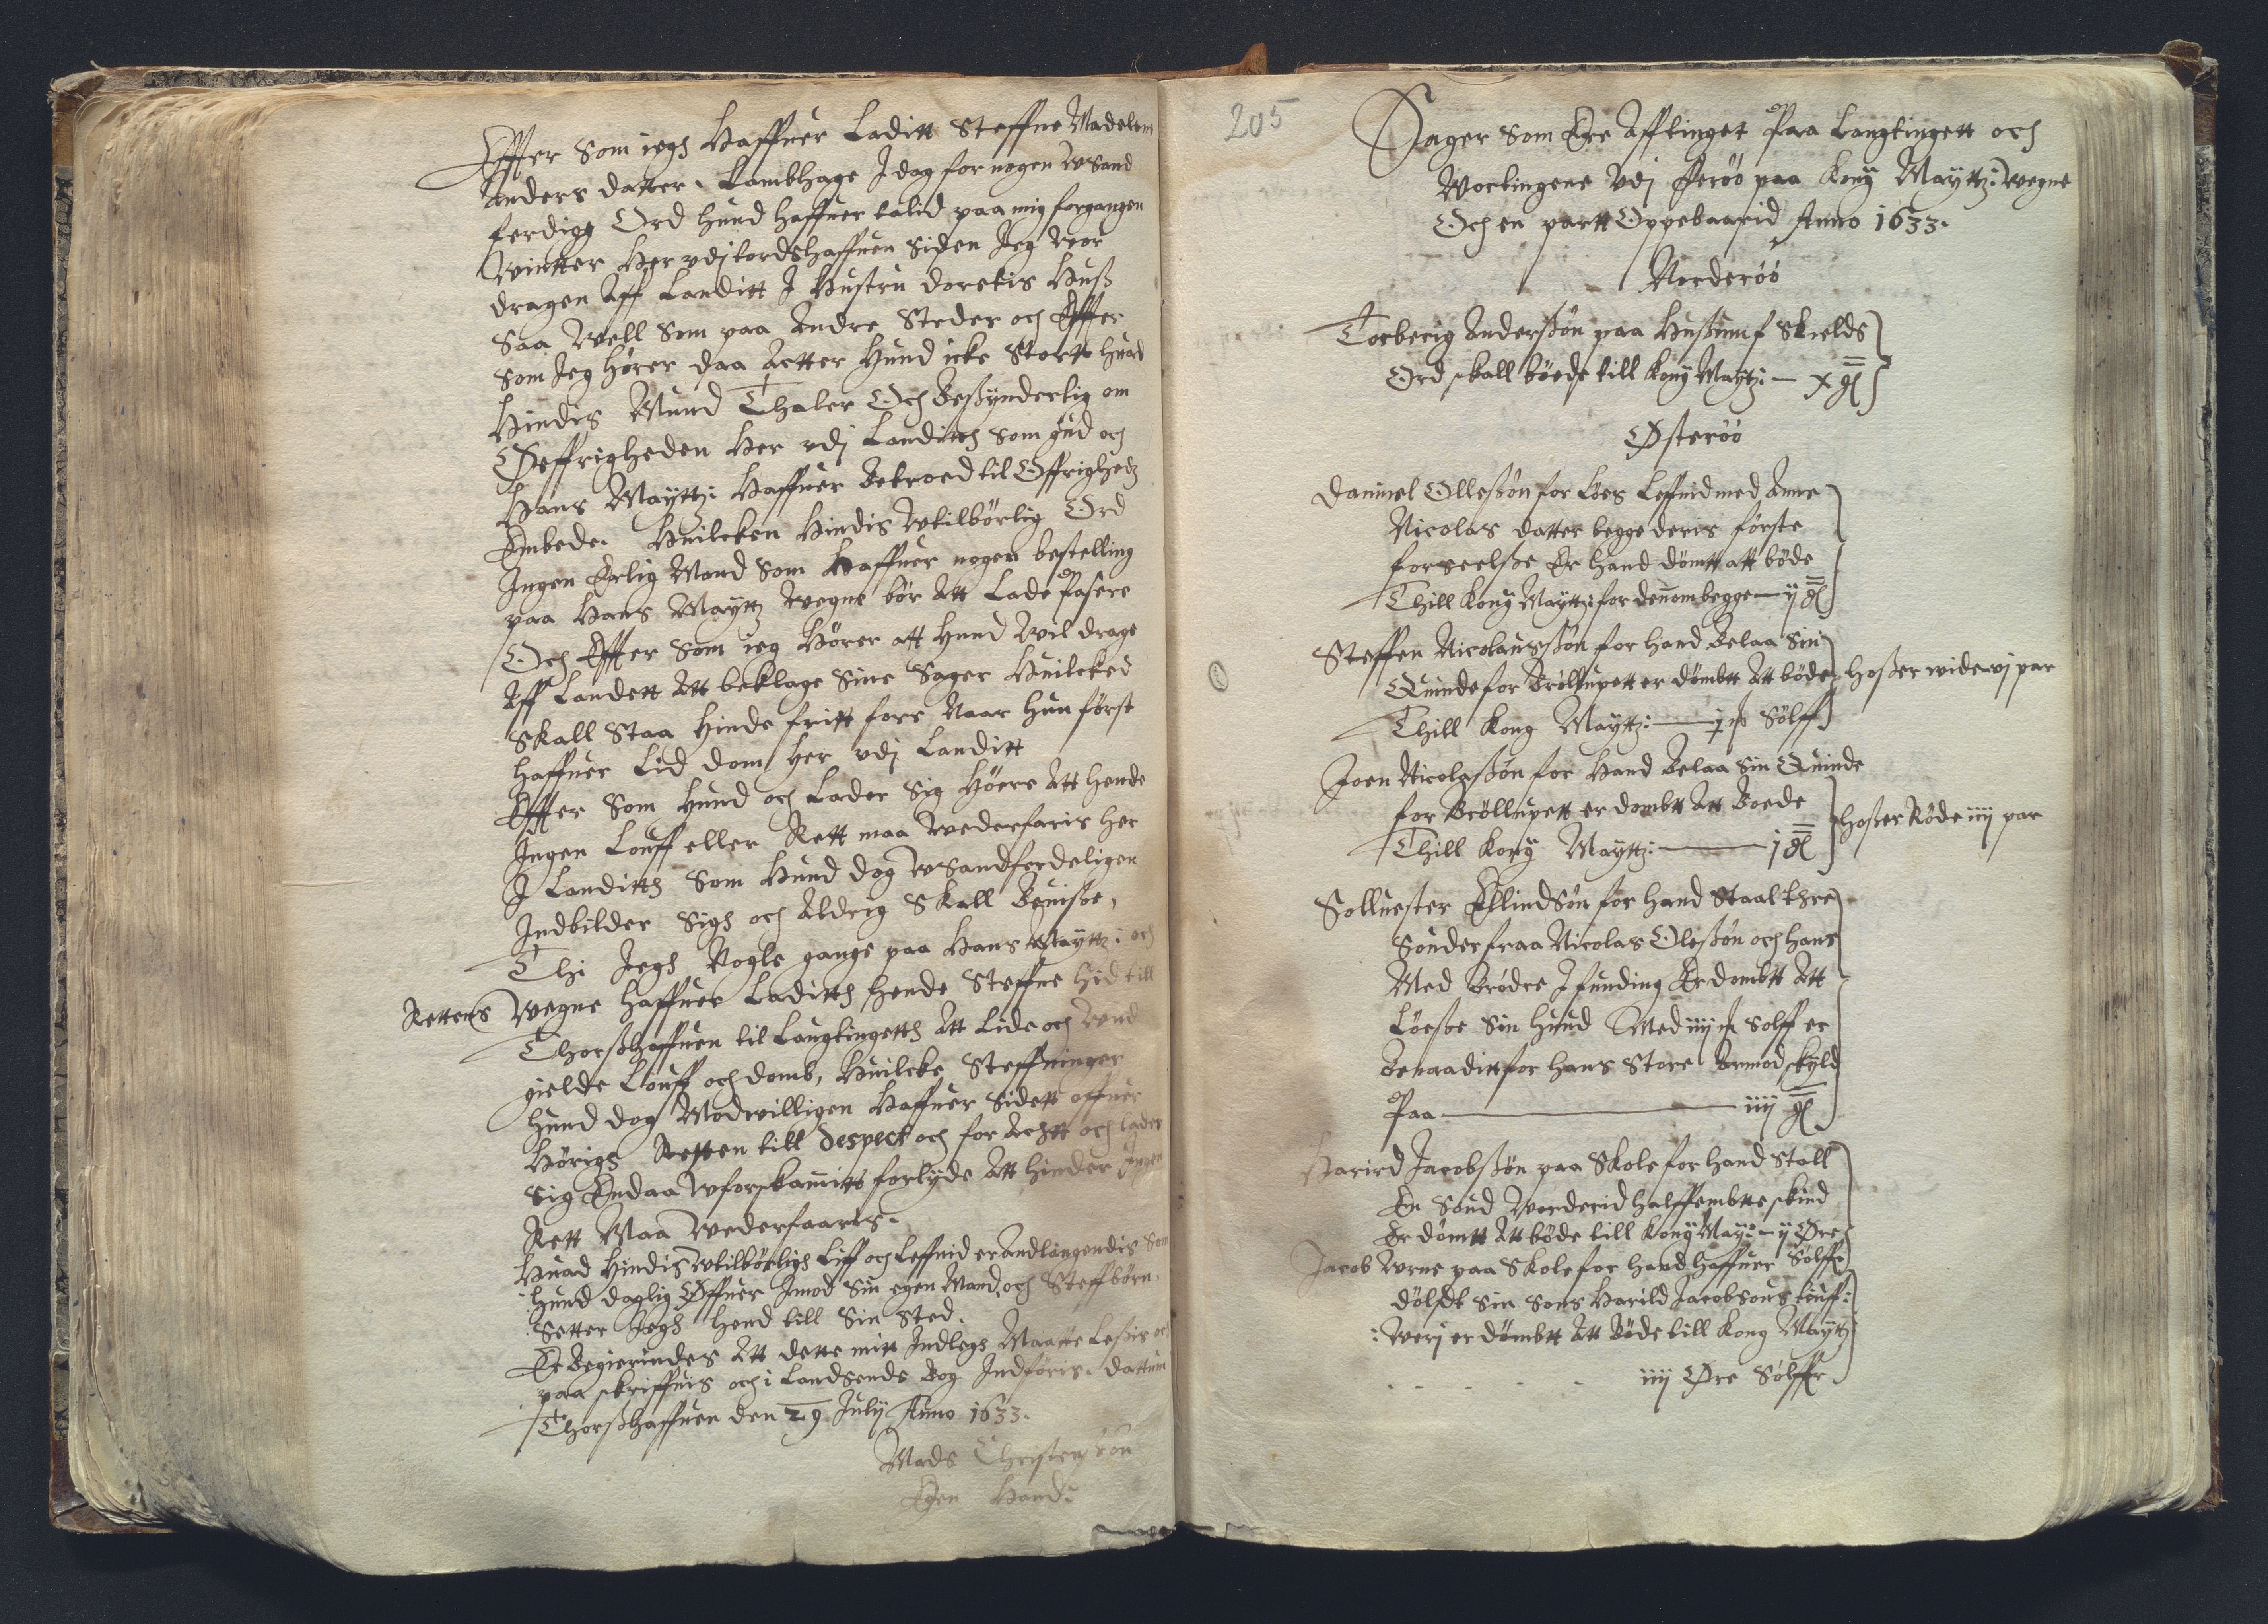 Effter Som iegh Haffuer Laditt Steffne Madelem
Anders datter i Lambhage I dag for nogen wSand
ferdige Ord hund haffuer talid paa mig forgangen
Wintter Her vdj tordshaffuen Siden Jeg Wor
dragen Aff Landitt I Hustru Doretis Huß
Saa Well Som paa Andre Steder och Effter
Som Jeg hører daa Acter Hund icke Stortt huad
Hindis Mund Thaler Och Besynderlig om
Øeffrigheden Her vdj Landitth Som gud och
Hans Mayttz: Haffuer Betroed til Øffrigheds
Embede. Huilcken Hindis Wtilbørlig Ord
Ingen Ærlig Mand Som Haffuer nogen bestelling
paa Hans Mayttz Wegne bør Att Lade Pasere
Och Effter Som ieg Hører att Hund Wil drage
Aff Landett Att beklage Sine Sager Huilcked
Skall Staa Hinde fritt fore Naar Hun først
Haffuer Lid dom her vdj Landitt
Effter Som Hund och Lader Sig Høere Att Hende
Ingen Louff eller Rett maa Wederfaris her
I Landitth Som Hund dog wSandferdeligen
Indbilder Sigh och Aldrig Skall Beuisse,
Thi Jegh Nogle gange paa Hans Mayttz: och
Rettens Wegne Haffuer Laditth Hende Steffne Hid till
Thorßhaffuen til Laugtingetth Att Lide och Und
gielde Louff och domb, Huilcke Steffninger
Hund dog Modwilligen Haffuer Sidett offuer
Hørigh Retten till Despect och for Achtt och Lader
Sig Endaa Wforskammitt forlyde Att Hinder Ingen
Rett Maa Wederfaaris.
Huad Hindis Wtilbørligh Liff och Leffnid er Andlangendis Som
Hund daglig Øffuer Imod Sin egen Mand och Steffbørn,
Setter Jegh Hend till Sin Sted.
Er Begierindes Att dette mitt Indlegh Maatte Leßis och
paa skriffuis och i Landsends Bog Indføris. Dattum
Thorßhaffuen den 29 Julij Anno 1633.
Mads Christenßøn
Egen Hand:
205
Sager Som Ere Afftinget Paa Laugtingett och
Wortingene Vdj Ferøø paa Kong Mayttz: Wegne
Och en partt Oppebaarid Anno 1633.
Norderøø
Torberig Anderßøn paa Hußum f Skields
Ord skall bøede till Kong Mayttz: — x gl
Østerøø
Danniel Olleßøn for Løes Leffnid med Anne
Nicolas datter begge deris første
forseelße Er Hand dømtt att bøde
Thill Kong Mayttz: for dennom begge — ij gl
Steffen Nicolausßøn for Hand Belaa Sin
Quinde for Brøllupett er dømbtt Att bøde
Thill Kong Mayttz: — j Sølff
Hoßer wide vj par
Joen Nicolaßøn for Hand Belaa Sin Quinde
for Brøllupett er dombtt Att Boede
Thill Kong Mayttz: — j gl
Hoßer Røde iiij par
Solluester Ellindsøn for Hand Staal thre
Souder fraa Nicolas Oleßøn och Hans
Med Brødre I funding Er dombtt Att
Løesse Sin Hund Med iiij Sølff er
Benaaditt for Hans Store Armod skyld
Paa — iiij gl
Harird Jacobßøn paa Skole for Hand Stall
En Soud Worderid Halffembtte skind
Er dømtt Att bøde till Kong May: — ij Øre
Sølff
Jacob paa Skole for Hand Haffuer
dølgdt Sin Sons Harild Jacobsons tiuff:
:werj er dømbtt Att Bøde till Kong Mayttz
iiij Øre Sølffr.